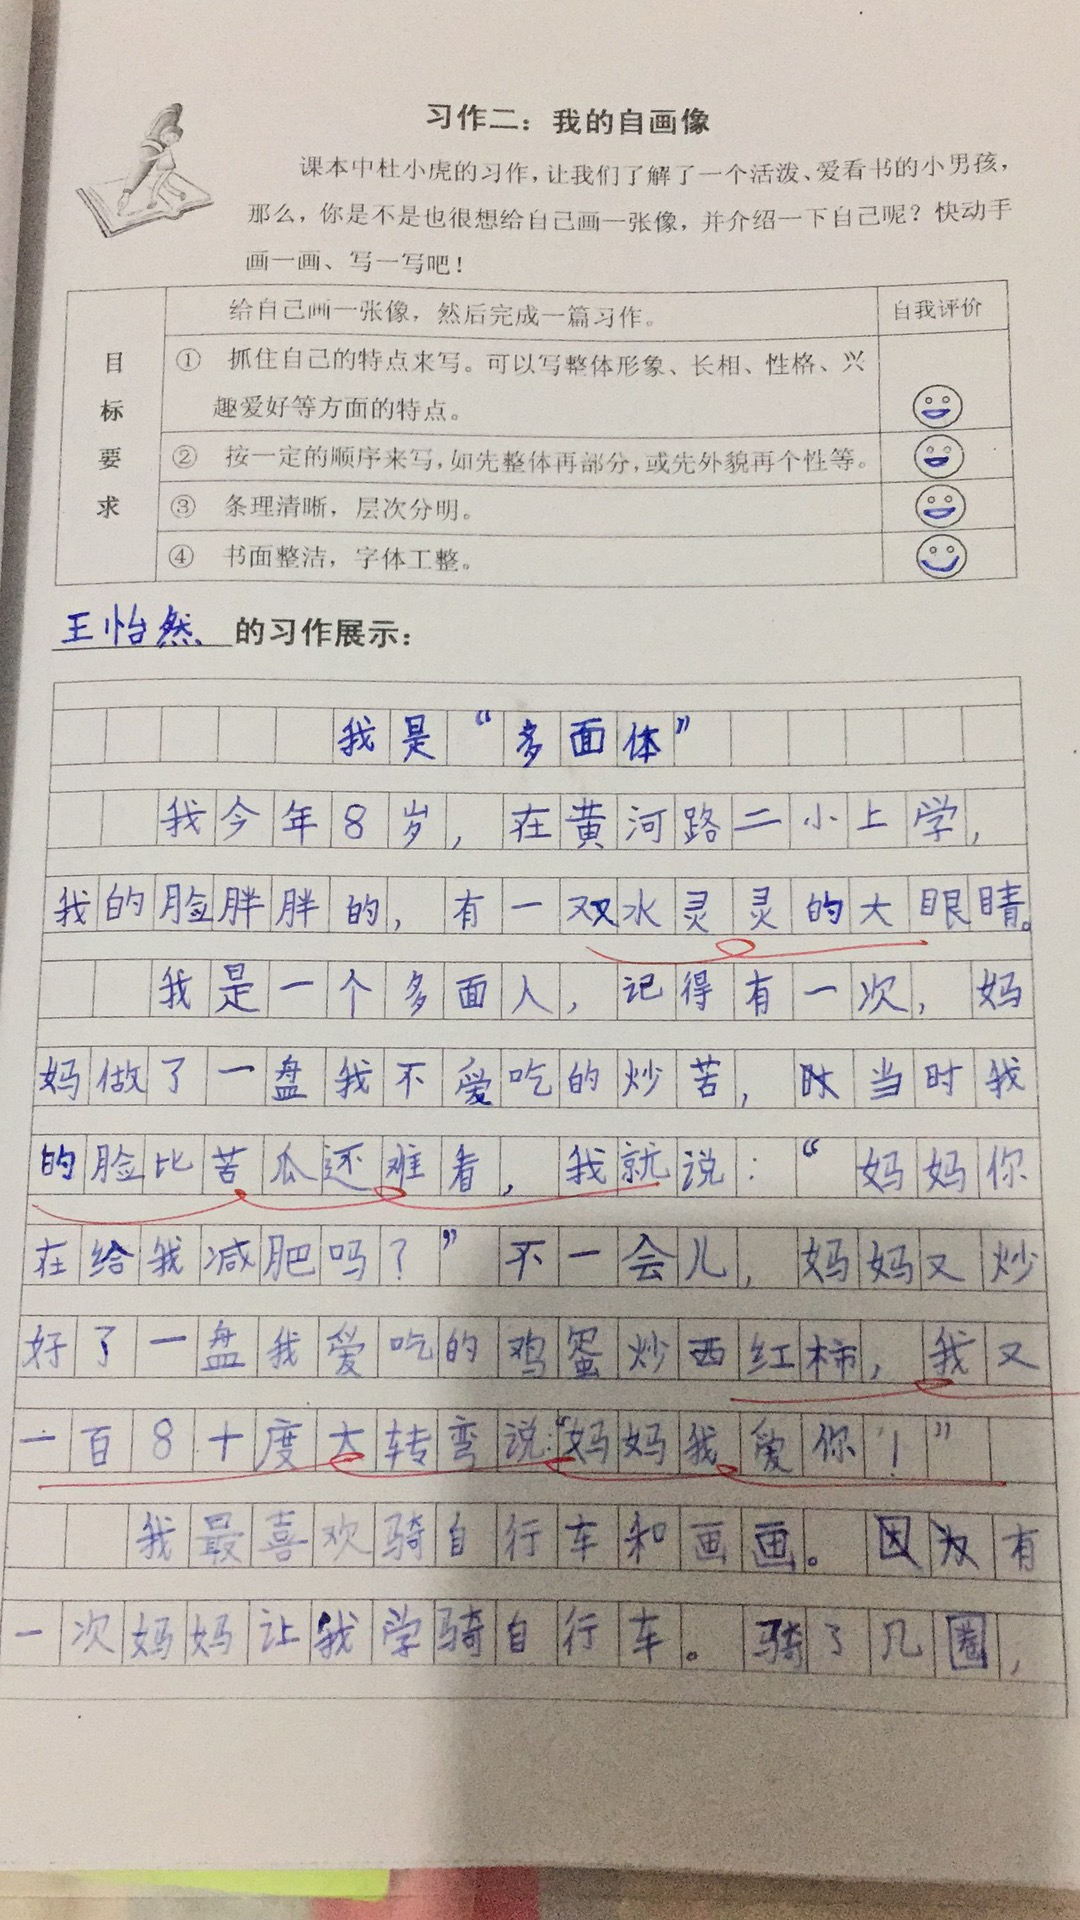 习作二：我的自画像
课本中杜小虎的习作，让我们了解了一个活泼、爱看书的小男孩，
那么，你是不是也很想给自己画一张像，并介绍一下自己呢？快动手
画一画、写一写吧！
给自己画一张像，然后完成一篇习作。
自我评价
目标要求
① 抓住自己的特点来写。可以写整体形象、长相、性格、兴
趣爱好等方面的特点。
② 按一定的顺序来写，如先整体再部分，或先外貌再个性等。
③ 条理清晰，层次分明。
④ 书面整洁，字体工整。
王怡然 的习作展示：
我是“多面体”
我今年8岁，在黄河路二小上学，
我的脸胖胖的，有一双水灵灵的大眼睛。
我是一个多面人，记得有一次，妈
妈做了一盘我不爱吃的炒苦，当时我
的脸比苦瓜还难看，我就说：“妈妈你
在给我减肥吗？”不一会儿，妈妈又炒
好了一盘我爱吃的鸡蛋炒西红柿，我又
一百8十度大转弯说：“妈妈我爱你！”
我最喜欢骑自行车和画画。因为有
一次妈妈让我学骑自行车。骑了几圈，